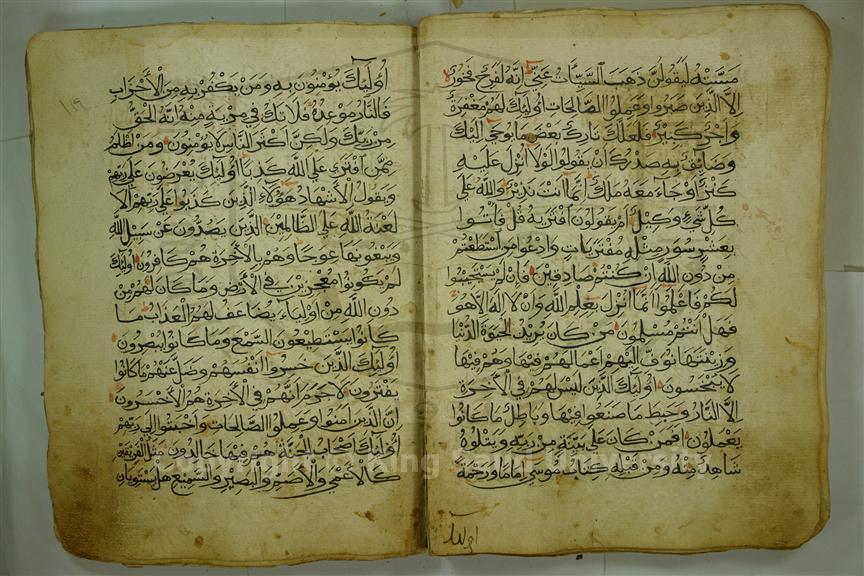 مسته ليقولن ذهب السيات عني انه لفرح فخور
الا الذين صبروا وعملوا الصالحات اوليك لهم مغفرة
واجر كبير فلعلك تارك بعض ما يوحى اليك
وضائق به صدرك ان يقولوا لولا انزل عليه
كنز او جاء معه ملك انما انت نذير والله على
كل شيء وكيل ام يقولون افتريه قل فاتوا
بعشر سور مثله مفتريات وادعوا من استطعتم
من دون الله ان كنتم صادقين فان لم يستجيبوا
لكم فاعلموا انما انزل بعلم الله وان لا اله الا هو
فهل انتم مسلمون من كان يريد الحيوة الدنيا
وزينتها نوف اليهم اعمالهم فيها وهم فيها
لا يبخسون اوليك الذين ليس لهم في الاخرة
الا النار وحبط ما صنعوا فيها وباطل ما كانوا
يعملون افمن كان على بينة من ربه ويتلوه
شاهد منه ومن قبله كتاب موسى اماما ورحمة
اوليك
اوليك يؤمنون به ومن يكفر به من الاحزاب
فالنار موعده فلا تك في مرية منه انه الحق
من ربك ولكن اكثر الناس لا يؤمنون ومن اظلم
ممن افترى على الله كذبا اوليك يعرضون على ربهم
ويقول الاشهاد هؤلاء الذين كذبوا على ربهم الا
لعنة الله على الظالمين الذين يصدون عن سبيل الله
ويبغونها عوجا وهم بالاخرة هم كافرون اوليك
لم يكونوا معجزين في الارض وما كان لهم من
دون الله من اولياء يضاعف لهم العذاب ما
كانوا يستطيعون السمع وما كانوا يبصرون
اوليك الذين خسروا انفسهم وضل عنهم ما كانوا
يفترون لا جرم انهم في الاخرة هم الاخسرون
ان الذين امنوا وعملوا الصالحات واخبتوا الى ربهم
اوليك اصحاب الجنة هم فيها خالدون مثل الفريقين
كالاعمى والاصم والبصير والسميع هل يستويان